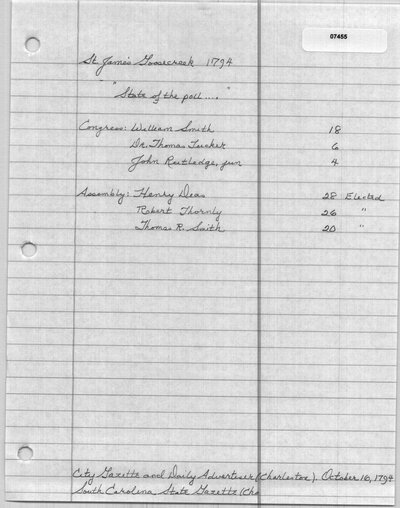 07455
St James Goosecreek 1794
"State of the poll...."
Congress: William Smith 18
Dr. Thomas Tucker 6
John Rutledge, jun 4
Assembly: Henry Deas 28 Elected
Robert Thornly 26 "
Thomas R. Smith 20 "
City Gazette and Daily Advertiser (Charleston). October 16, 1794
South Carolina State Gazette (Cha